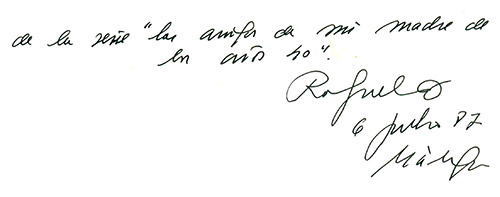 de la serie "las amigas de mi madre de
los años 40".
Rafael
6 julio 87
Málaga